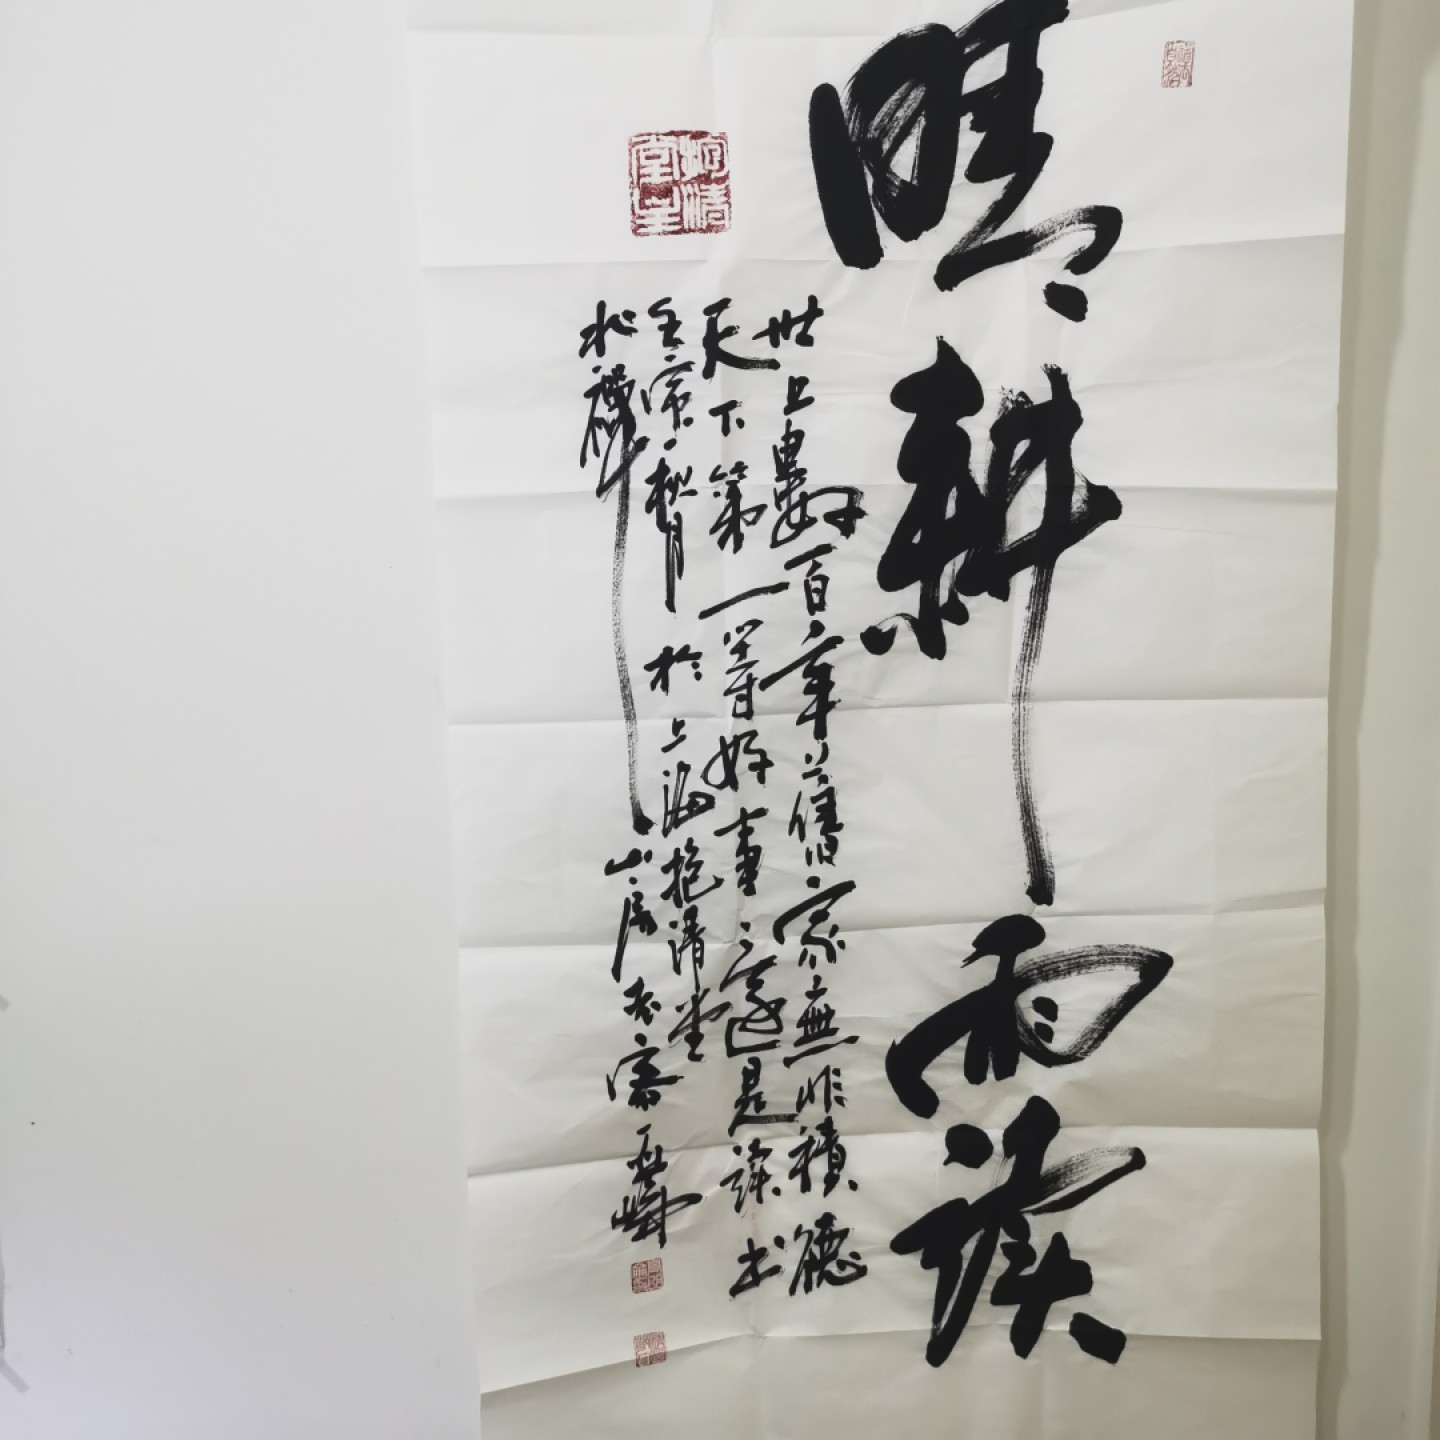 晴耕雨读
世上數百年舊家無非積德
天下第一等好事還是讀书
壬寅秋月於上海抱清堂
水禪山房
抱清堂主